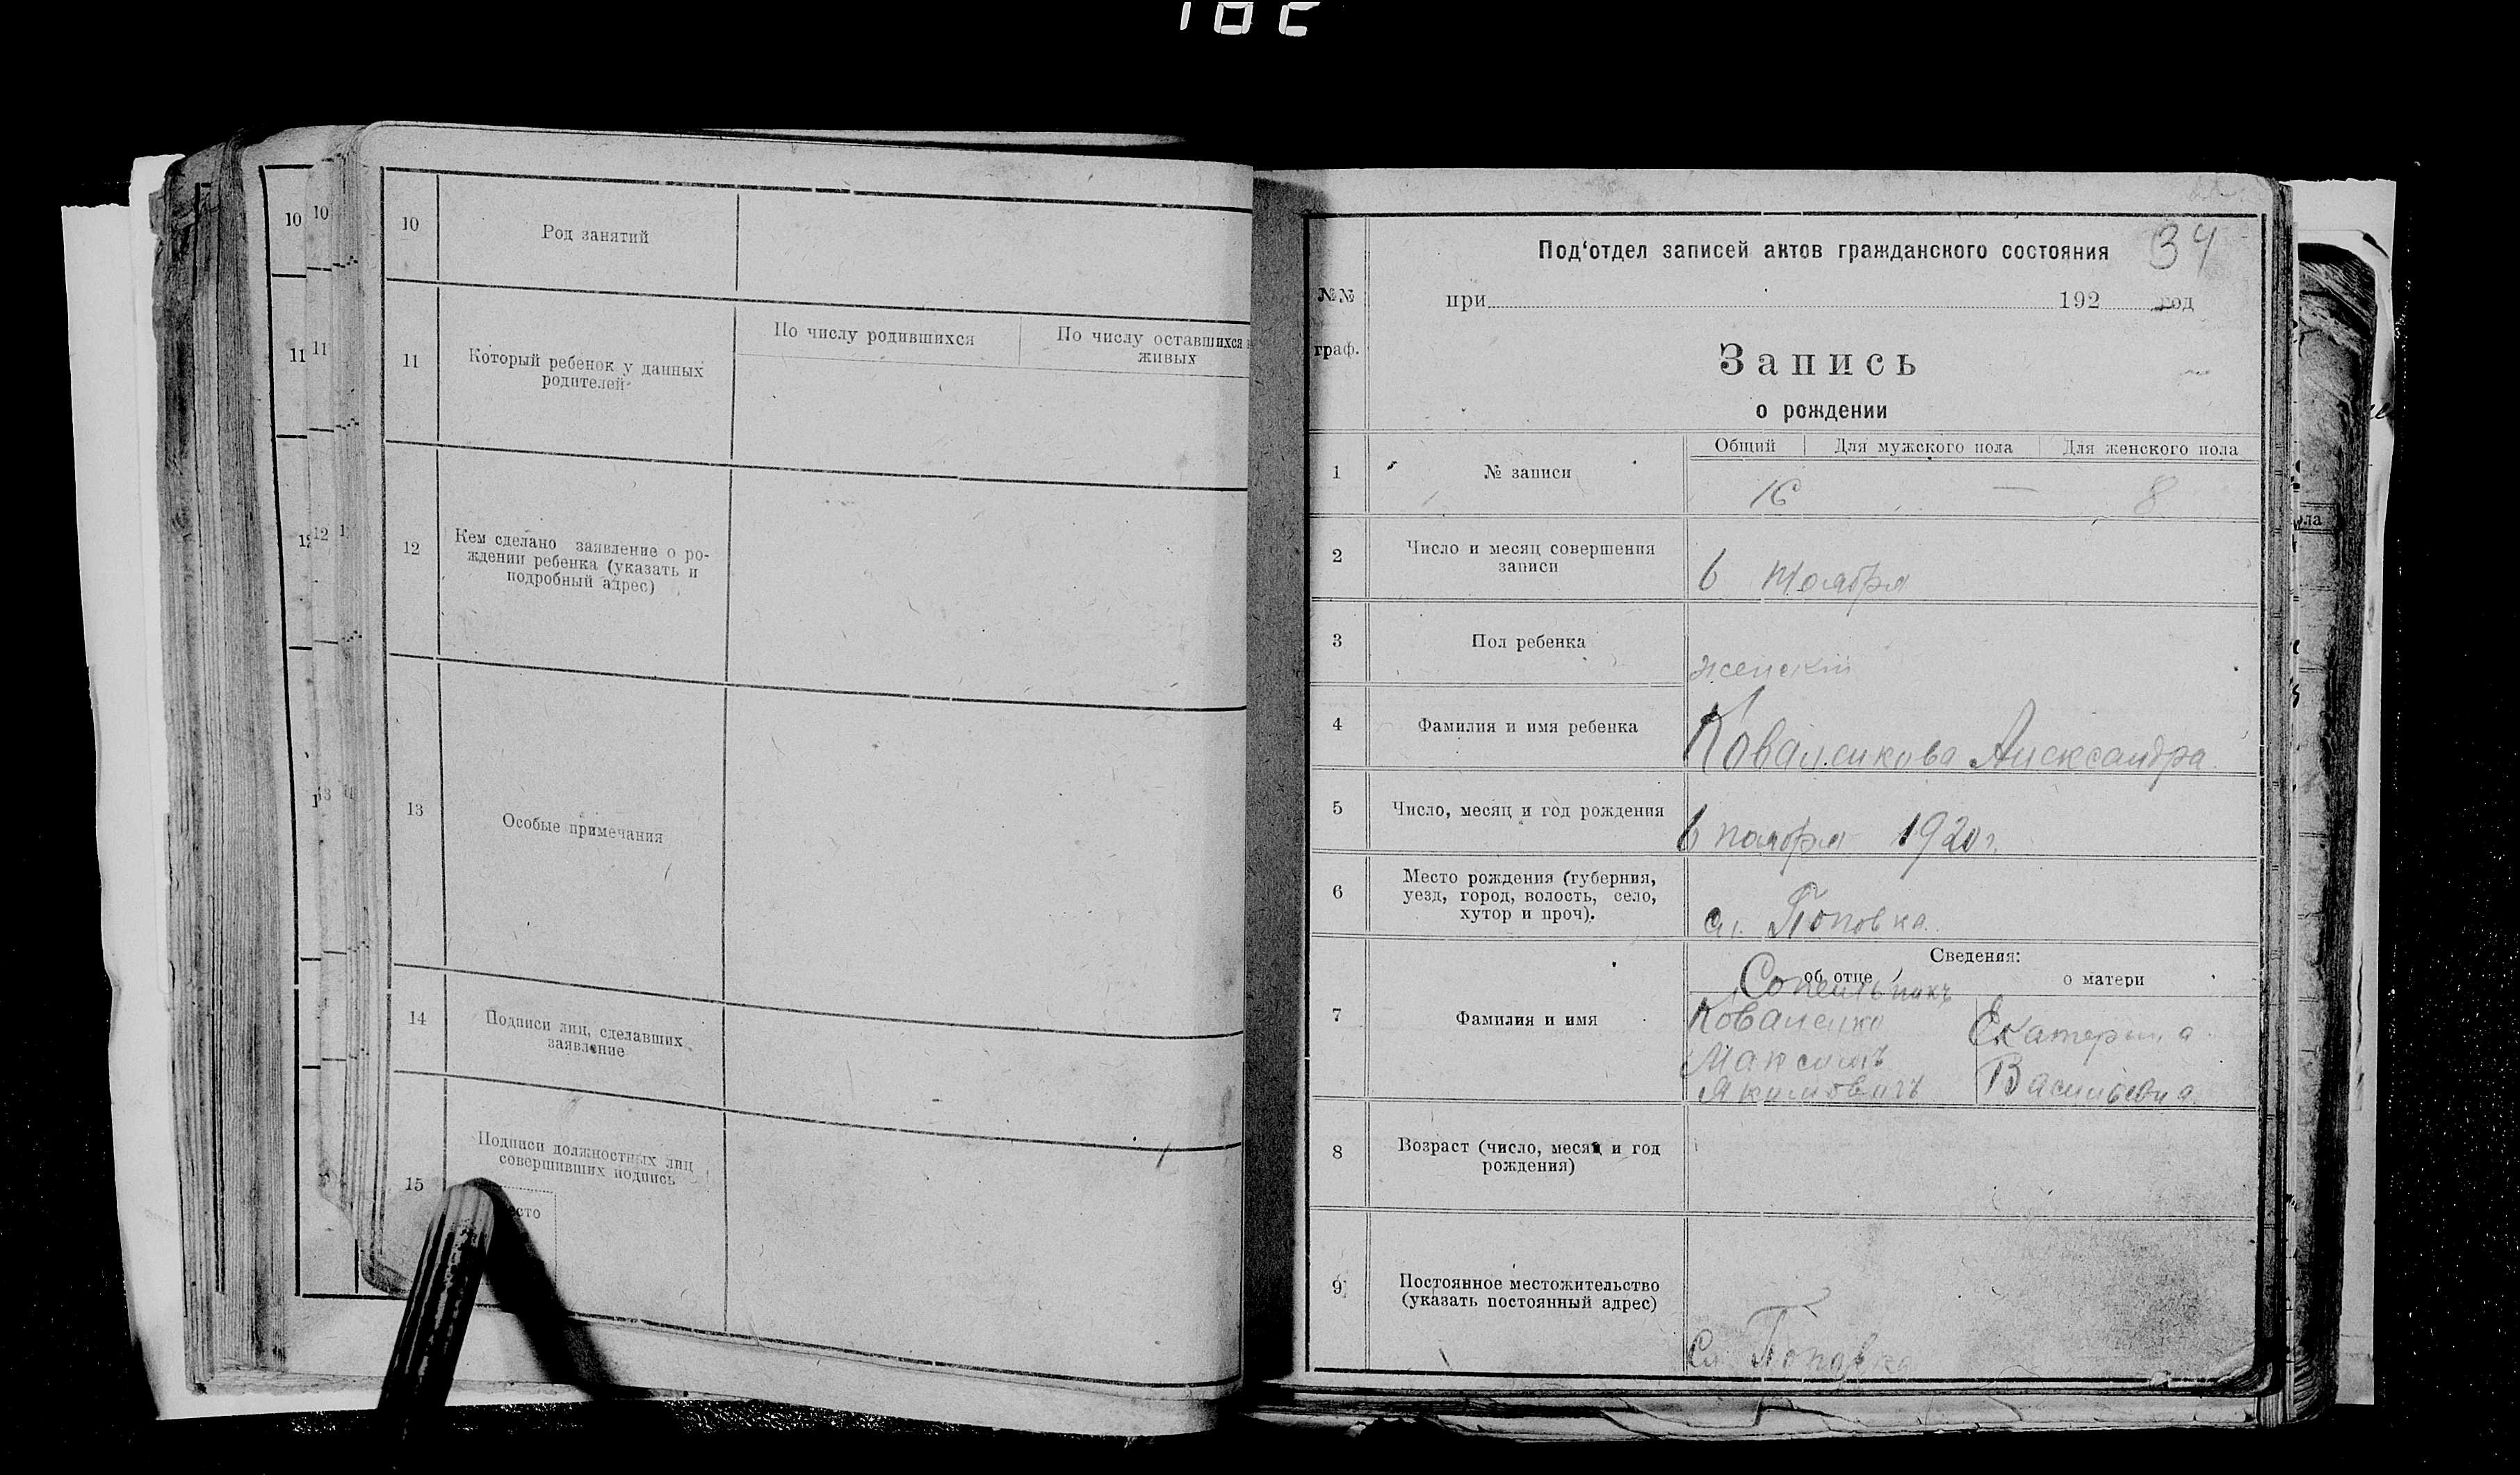 10
Род занятий
11
Который ребенок у данных
родителей
По числу родившихся
По числу оставшихся
живых
12
Кем сделано заявление о ро-
ждении ребенка (указать и
подробный адрес)
13
Особые примечания
14
Подписи лиц, сделавших
заявление
15
Подписи должностных лиц
совершивших подпись
34
№№
граф.
Под‘отдел записей актов гражданского состояния
при 192 год
Запись
о рождении
1
№ записи
Общий Для мужского пола Для женского пола
16 — 8
2
Число и месяц совершения
записи
6 Ноября
3
Пол ребенка
женскій
4
Фамилия и имя ребенка
Коваленкова Александра
5
Число, месяц и год рождения
6 ноября 1920 г.
6
Место рождения (губерния,
уезд, город, волость, село,
хутор и проч).
сл. Поповка
Сведения:
об отце о матери
7
Фамилия и имя
Коваленко
Максимъ
Якимовичъ
Екатерина
Васильевна
8
Возраст (число, месяц и год
рождения)
9
Постоянное местожительство
(указать постоянный адрес)
Сл. Поповка